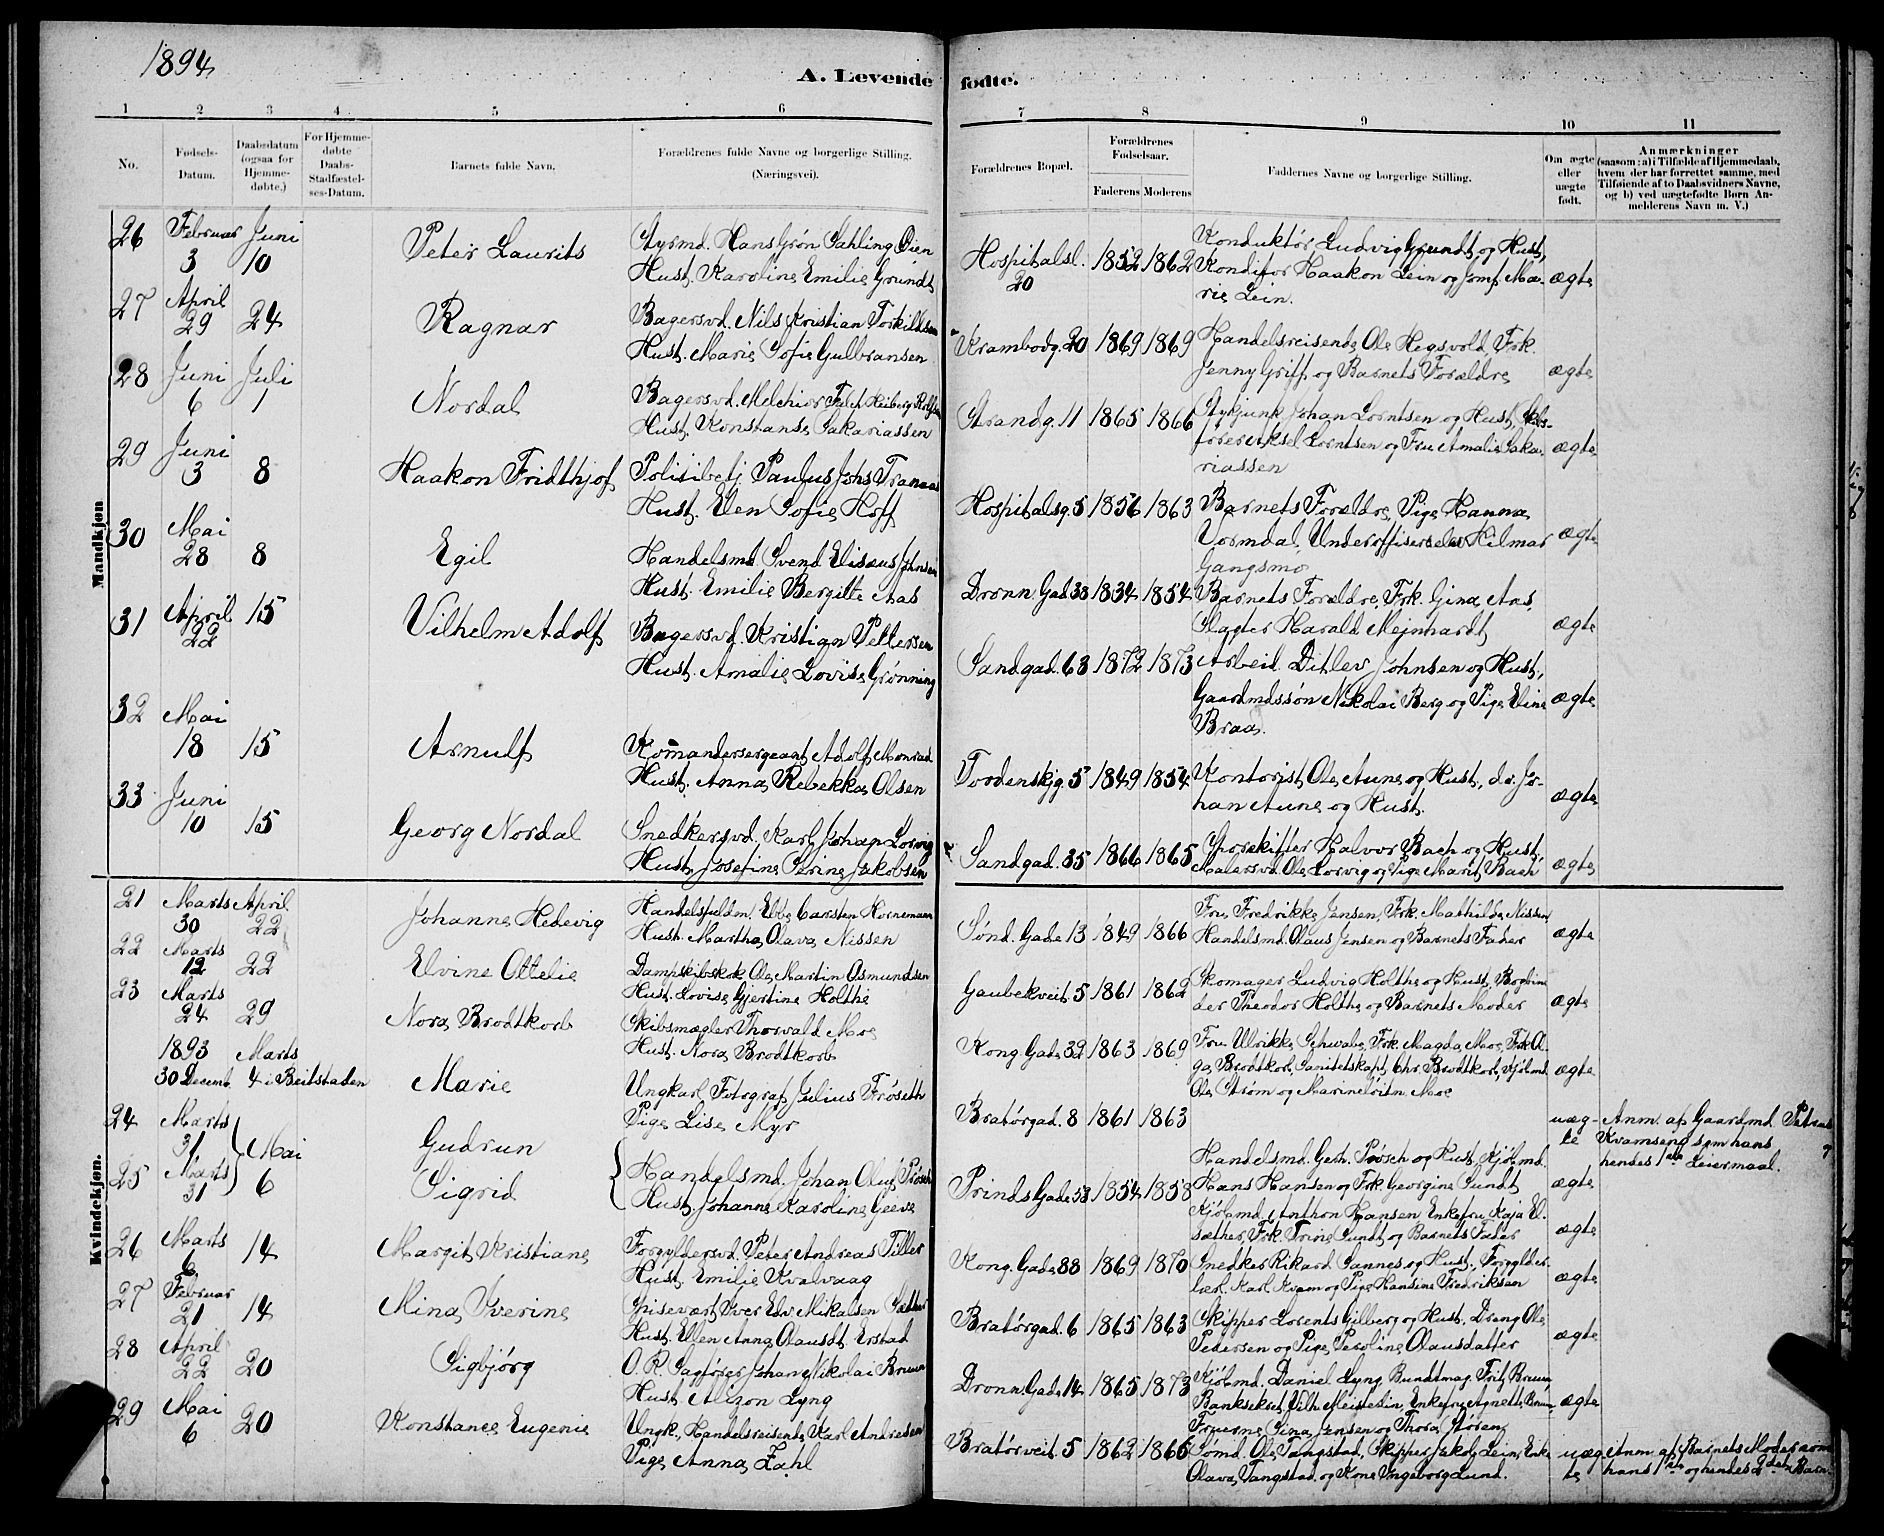 1894
A. Levende fødte.
1 2 3 4 5 6 7 8 9 10 11
No.
Fødsels-Datum.
Daabsdatum (ogsaa for Hjemme-døbte.)
For Hjemme-døbte Daabs-Stadfæstel-ses-Datum.
Barnets fulde Navn.
Forældrenes fulde Navne og borgerlige Stilling. (Næringsvei).
Forældrenes Bopæl.
Forældrenes Fødselsaar.
Faderens Moderens
Faddernes Navne og borgerlige Stilling.
Om ægte eller uægte født.
Anmærkninger
(saasom: a) i Tilfælde af Hjemmedaab,
hvem der har forrettet samme, med
Tilføiende af to Daabsvidners Navne,
og b) ved uægtefødte Børn An-
melderens Navn m. V.)
Mandkjøn
26 Februar 3 Juni 10 Peter Laurits
Styrmd. Hans Grøn Sahling Oien
Hust. Karoline Emilie Grundt
Hospitalsl. 20 1852 1862
Konduktør Ludvig Grundt og Hust,
Konditor Haakon Lein og Jomf. Ma-
rie Lein.
ægte
27 April 29 24 Ragnar
Bagersvd. Nils Kristian Torkildsen
Hust. Marie Sofie Gulbransen
Krambodg. 20 1869 1869
Handelsreisende Ole Hegsvold, Frk.
Jenny Griff og Barnets Forældre
ægte
28 Juni 6 Juli 1 Nordal
Bagersvd. Melchior Falch Heiberg
Hust. Konstanse Sakariassen
Strandg. 11 1865 1866
Johan Lorntsen og Hust,
Lorntsen og Fru Amalie Saka-
riassen
ægte
29 Juni 3 8 Haakon Fridthjof
Politibetj. Paulus Johs Tranaas
Hust. Elen Sofie Hoff
Hospitalsg. 5 1856 1863
Barnets Forældre, Pige Hanna
Vormdal, Underoffiserselev Hilmar
Gangsmo
ægte
30 Mai 28 8 Egil
Handelsmd. Svend Elisæus Johnsen
Hust. Emilie Bergitte Aas
Dronn. Gad. 38 1834 1854
Barnets Forældre, Frk. Gina Aas,
Slagter Harald Mejnhardt
ægte
31 April 22 15 Vilhelm Adolf
Bagersvd. Kristian Pettersen
Hust. Amalie Lovise Grønning
Sandgad. 63 1872 1873
Arbeid. Ditlev Johnsen og Hust,
Gaardmdssøn Nikolai Berg og Pige Eline
Braa.
ægte
32 Mai 18 15 Arnulf
Komandersergeant Adolf Monrad
Hust. Anna Rebekka Olsen
Tordenskjg. 5 1849 1854
Kontorist Ole Aune og Hust., do. Jo-
han Aune og Hust.
ægte
33 Juni 10 15 Georg Nordal
Snedkersvd. Karl Johan Lorvig
Hust. Josefine Serine Jakobsen
Sandgad. 35 1866 1865
Sporskifter Halvor Bach og Hust,
Malersvd. Ole Lorvig og Pige Marit Bach
ægte
Kvindekjøn.
21 Marts 30 April 22 Johanne Hedevig
Handelsfuldm. Ebbe Carsten Hornemann
Hust. Martha Olava Nissen
Sønd. Gade 13 1849 1866
Fru Fredrikke Jensen, Frk. Mathilde Nissen
Handelsmd. Olaus Jensen og Barnets Fader
ægte
22 Marts 12 22 Elvine Ottelie
Dampskibskok Ole Martin Osmundsen
Hust. Lovise Gjertine Holthe
Gaubekveit 5 1861 1862
Skomager Ludvig Holthe og Hust, Bogbin-
der Theodor Holthe og Barnets Moder
ægte
23 Marts 24 29 Nora Brodtkorb
Skibsmægler Thorvald Moe
Hust. Nora Brodtkorb
Kong. Gade 39 1863 1869
Fru Ulrikke Schwabe, Frk. Magda Moe, Frk Ol-
ga Brodtkorb, Sanitetskapt. Chr. Brodtkorb, Kjøbmd.
Ole Strøm og Marineløitn. Moe
ægte
1893 30 Decemb. Marts 4 i Beitstaden Marie
Ungkarl Fotograf Julius Frøseth
Pige Lise Myr
Bratørgad. 8 1861 1863
uæg-
te
Anm. af Gaardmd. Petrus
Kvamseng som hans
hendes 1ste Leiermaal.
24 Marts 31 Mai 6 Gudrun
25 Marts 31 Sigrid
Handelsmd. Johan Oluf Pøsch
Hust. Johanne Karoline Greve
Prinds. Gade 53 1854 1858
Handelsmd. Gerh. Pøsch og Hust, Kjøbmd.
Hans Hansen og Frk Georgine Sundt
ægte
Kjøbmd. Anthon Hansen Enkefru Kaja El-
sæther, Frk. Trine Sundt og Barnets Fader
ægte
26 Marts 6 14 Margit Kristiane
Forgyldersvd. Peter Andreas Tiller
Hust. Emilie Kvalvaag
Kong. Gade 88 1869 1870
Snedker Rikard Sannes og Hust, Forgylder-
lærl. Karl Kvam og Pige Hansine Fredriksen
ægte
27 Februar 21 14 Mina Iverine
Spisevært Iver Edv. Mikalsen Sæther
Hust. Ellen Anna Olausdt. Erstad
Bratørgad. 6 1865 1863
Skipper Lorents Gilberg og Hust, Dreng Ole
Pedersen og Pige Peroline Olausdatter
ægte
28 April 22 20 Sigbjørg
O. R. Sagfører Johan Nikolai Bruun
Hust. Alizon Lyng
Dronn. Gade 14 1865 1873
Kjøbmd. Daniel Lyng, Bundtmag. Fritz Bruun,
Banksekret. Vilh. Meisterlin, Enkefru Agnette Bruun,
Fruerne Sina Jensen og Thora Støren
ægte
29 Mai 6 20 Konstance Eugenie
Ungk., Handelsreisende Karl Andresen
Pige Anna Zahl
Bratørveit 5 1862 1866
Sømd. Ole Tangstad, Skipper Jakob Lein, Enke
Olava Tangstad, og Kone Ingeborg Lund.
uæg-
te
Anm. af Barnets Moder som
hans 1ste og hendes 2det Barn.